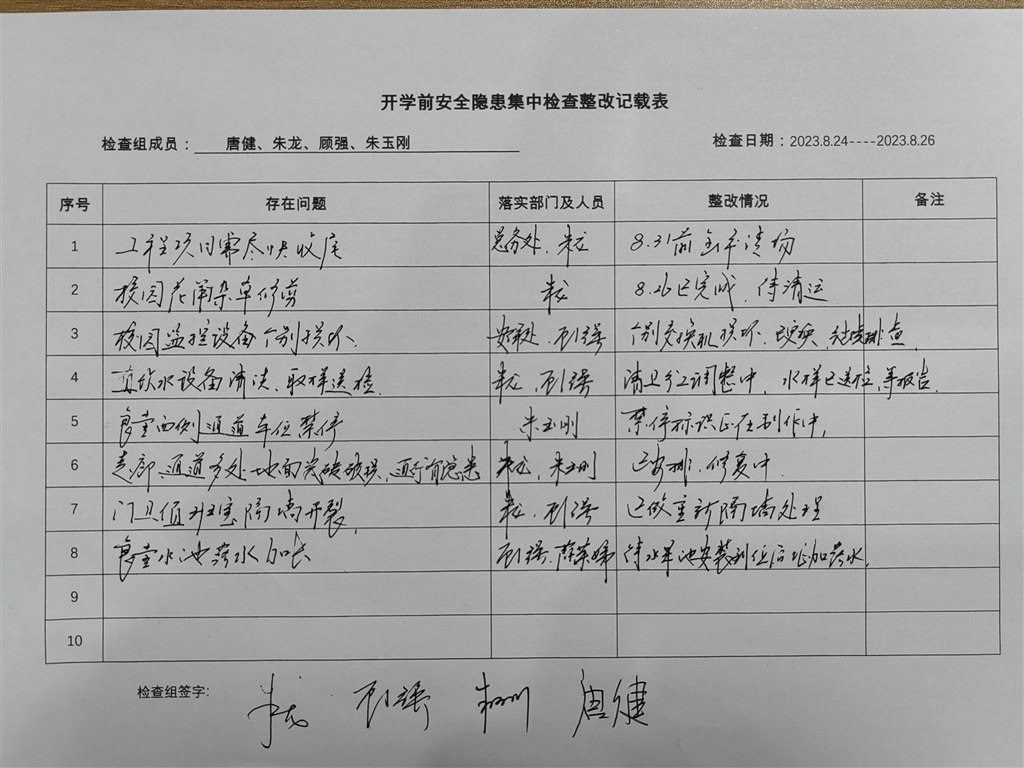 开学前安全隐患集中检查整改记载表
检查组成员： 唐健、朱龙、顾强、朱玉刚 检查日期：2023.8.24----2023.8.26
序号 存在问题 落实部门及人员 整改情况 备注
1 工程项目需尽快收尾 总务处、朱龙 8.31前全部清场
2 校园花圃杂草修剪 朱龙 8.26已完成，待清运
3 校园监控设备个别损坏、 安保处、顾强 个别交换机损坏、已更换，继续排查，
4 直饮水设备清洗、取样送检 朱龙，顾强 清卫分工调整中，水样已送检，等报告．
5 食堂西侧通道车位禁停 朱玉刚 禁停标识正在制作中，
6 走廊、通道多处地面瓷砖破损，通行有隐患 朱龙，朱玉刚 已安排，修复中．
7 门卫值班室隔墙开裂， 朱龙、顾强 已做重新隔墙处理
8 食堂水池落水加长 顾强、 待水池安装到位后加落水，
9
10
检查组签字： 朱龙 顾强 朱玉刚 唐健